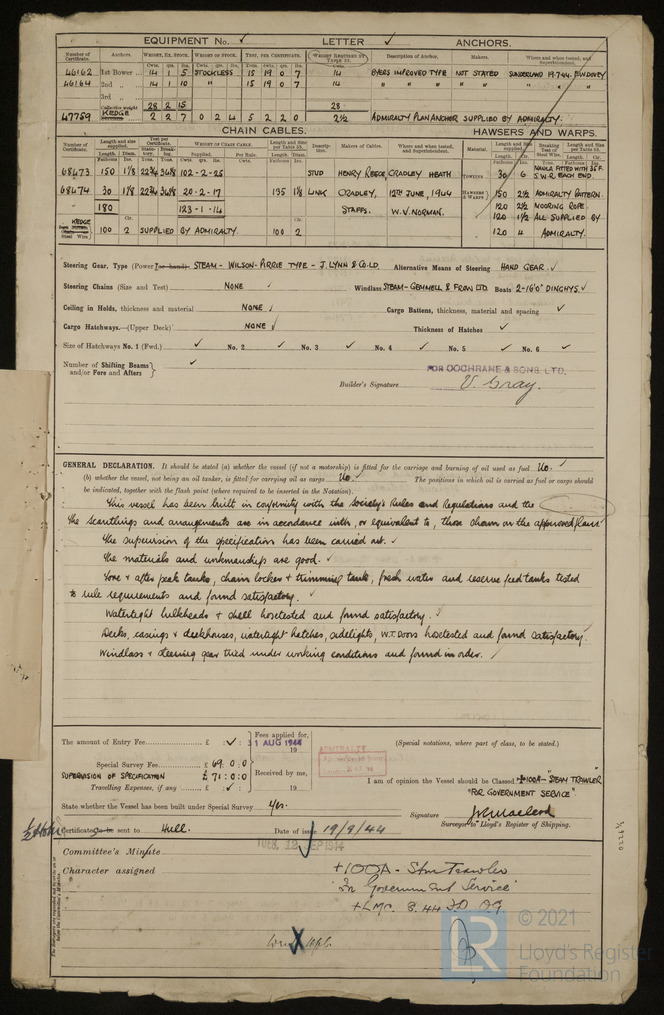 EQUIPMENT No. ✓ LETTER ✓ ANCHORS.
Number of Certificate. Anchors. Weight, Ex. Stock. Weight of Stock. Test, per Certificate. Weight Required by Table 53. Description of Anchor. Makers. Where and when tested, and Superintendent.
Cwts. qrs. lbs. Cwts. qrs. lbs. Tons. Cwts. qrs. lbs. Cwts.
46162 1st Bower 14 1 5 STOCKLESS 15 19 0 7 14 BYERS IMPROVED TYPE NOT STATED SUNDERLAND 19.7.44.
46164 2nd " 14 1 10 " 15 19 0 7 14 " " " " " " "
3rd "
Collective weight 28 2 15 28
47759 KEDGE 2 2 7 0 2 4 5 2 2 0 2½ ADMIRALTY PLAN ANCHOR SUPPLIED BY ADMIRALTY.
CHAIN CABLES. HAWSERS AND WARPS.
Number of Certificate. Length and size supplied. Test per Certificate. WEIGHT OF CHAIN CABLE. Length and Size per Table 53. Description. Makers of Cables. Where and when tested, and Superintendent. Material. Length and size supplied. Breaking Test of Steel Wire. Length and Size per Table 53.
Length. Diam. Supplied. Per Rule. Length. Diam.
68473 150 1⅛ 22¾ 34⅛ 102-2-25 STUD HENRY REECE, CRADLEY HEATH TOWLINE 30 6 MANILA FITTED WITH 36F. S.W.R. EACH END.
68474 30 1⅛ 22¾ 34⅛ 20-2-17 135 1⅛ LINK CRADLEY, 12TH JUNE, 1944 HAWSERS & WARPS 150 2½ ADMIRALTY PATTERN
180 123-1-14 STAFFS. W.V. NORMAN. 120 2½ MOORING ROPE.
120 1½ ALL SUPPLIED BY
KEDGE Steel Wire 100 2 SUPPLIED BY ADMIRALTY. 100 2 120 4 ADMIRALTY.
Steering Gear, Type (Power or hand) STEAM - WILSON-PIRRIE TYPE - J. LYNN & Co. LD. Alternative Means of Steering HAND GEAR ✓
Steering Chains (Size and Test) NONE ✓ Windlass STEAM-GEMMELL & FROW LTD. Boats 2-16'0" DINGHYS. ✓
Ceiling in Holds, thickness and material NONE ✓ Cargo Battens, thickness, material and spacing ✓
Cargo Hatchways.—(Upper Deck) NONE ✓ Thickness of Hatches ✓
Size of Hatchways No. 1 (Fwd.) ✓ No. 2 ✓ No. 3 ✓ No. 4 ✓ No. 5 ✓ No. 6 ✓
Number of Shifting Beams and/or Fore and Afters } ✓
FOR COCHRANE & SONS, LTD.
Builder's Signature V. Gray.
GENERAL DECLARATION. It should be stated (a) whether the vessel (if not a motorship) is fitted for the carriage and burning of oil used as fuel No. ✓
(b) whether the vessel, not being an oil tanker, is fitted for carrying oil as cargo No. ✓ The positions in which oil is carried as fuel or cargo should
be indicated, together with the flash point (where required to be inserted in the Notation).
This vessel has been built in conformity with the Society's Rules and Regulations and the
the scantlings and arrangements are in accordance with, or equivalent to, those shown on the approved plans
The supervision of the specification has been carried out. ✓
The materials and workmanship are good. ✓
Fore & after peak tanks, chain locker & trimming tank, fresh water and reserve feed tanks tested
to rule requirements and found satisfactory. ✓
Watertight bulkheads & shell hosetested and found satisfactory. ✓
Decks, casings & deckhouses, watertight hatches, sidelights, W.T. Doors hosetested and found satisfactory.
Windlass & steering gear tried under working conditions and found in order. ✓
The amount of Entry Fee £ : ✓ : Fees applied for,
31 AUG 1944
Special Survey Fee £ 69 : 0 : 0
SUPERVISION OF SPECIFICATION £ 71 : 0 : 0 Received by me,
Travelling Expenses, if any £ : ✓ : 19
ADMIRALTY
(Special notations, where part of class, to be stated.)
I am of opinion the Vessel should be Classed +100A - "STEAM TRAWLER"
"FOR GOVERNMENT SERVICE".
State whether the Vessel has been built under Special Survey Yes.
Signature
Surveyor to Lloyd's Register of Shipping.
Certificate to be sent to Hull. Date of issue 19/9/44
TUES. 12 SEP 1944
Committee's Minute
Character assigned +100A - Stm Trawler
"In Government Service"
+LMC. 8.44
LR
© 2021
Lloyd's Register
Foundation